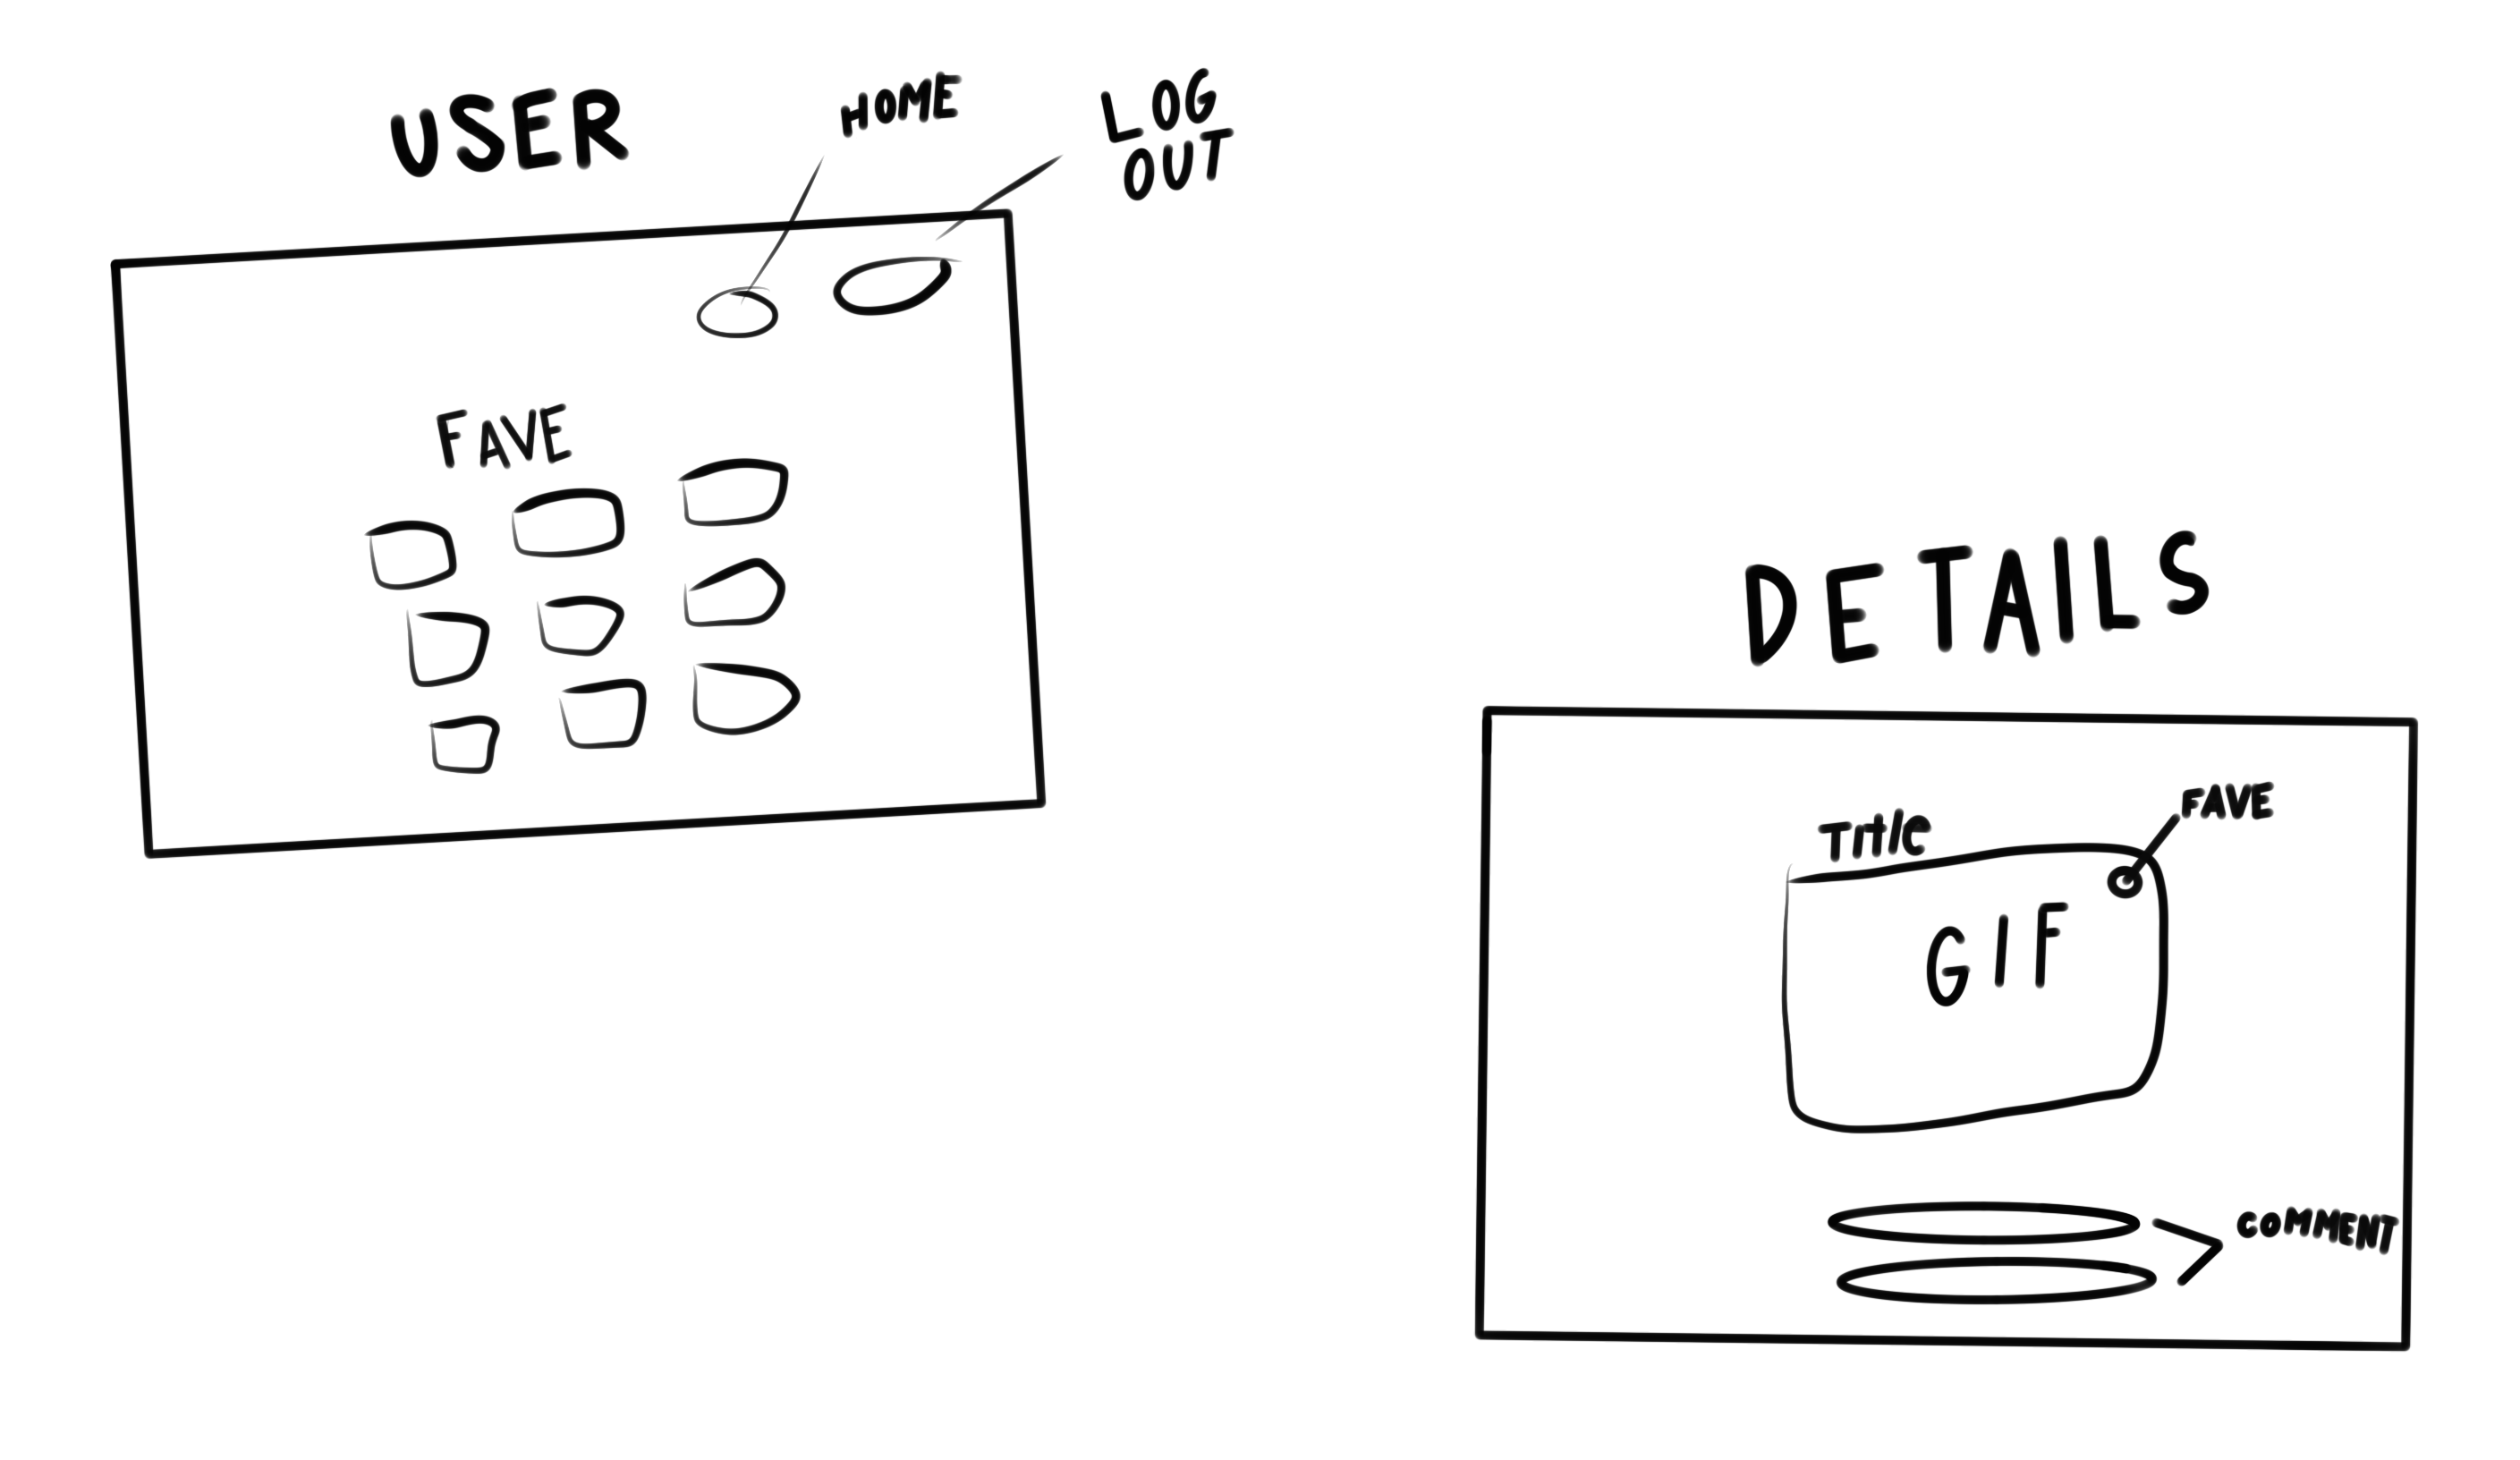 USER
HOME
LOG
OUT
FAVE
DETAILS
Title
FAVE
GIF
COMMENT